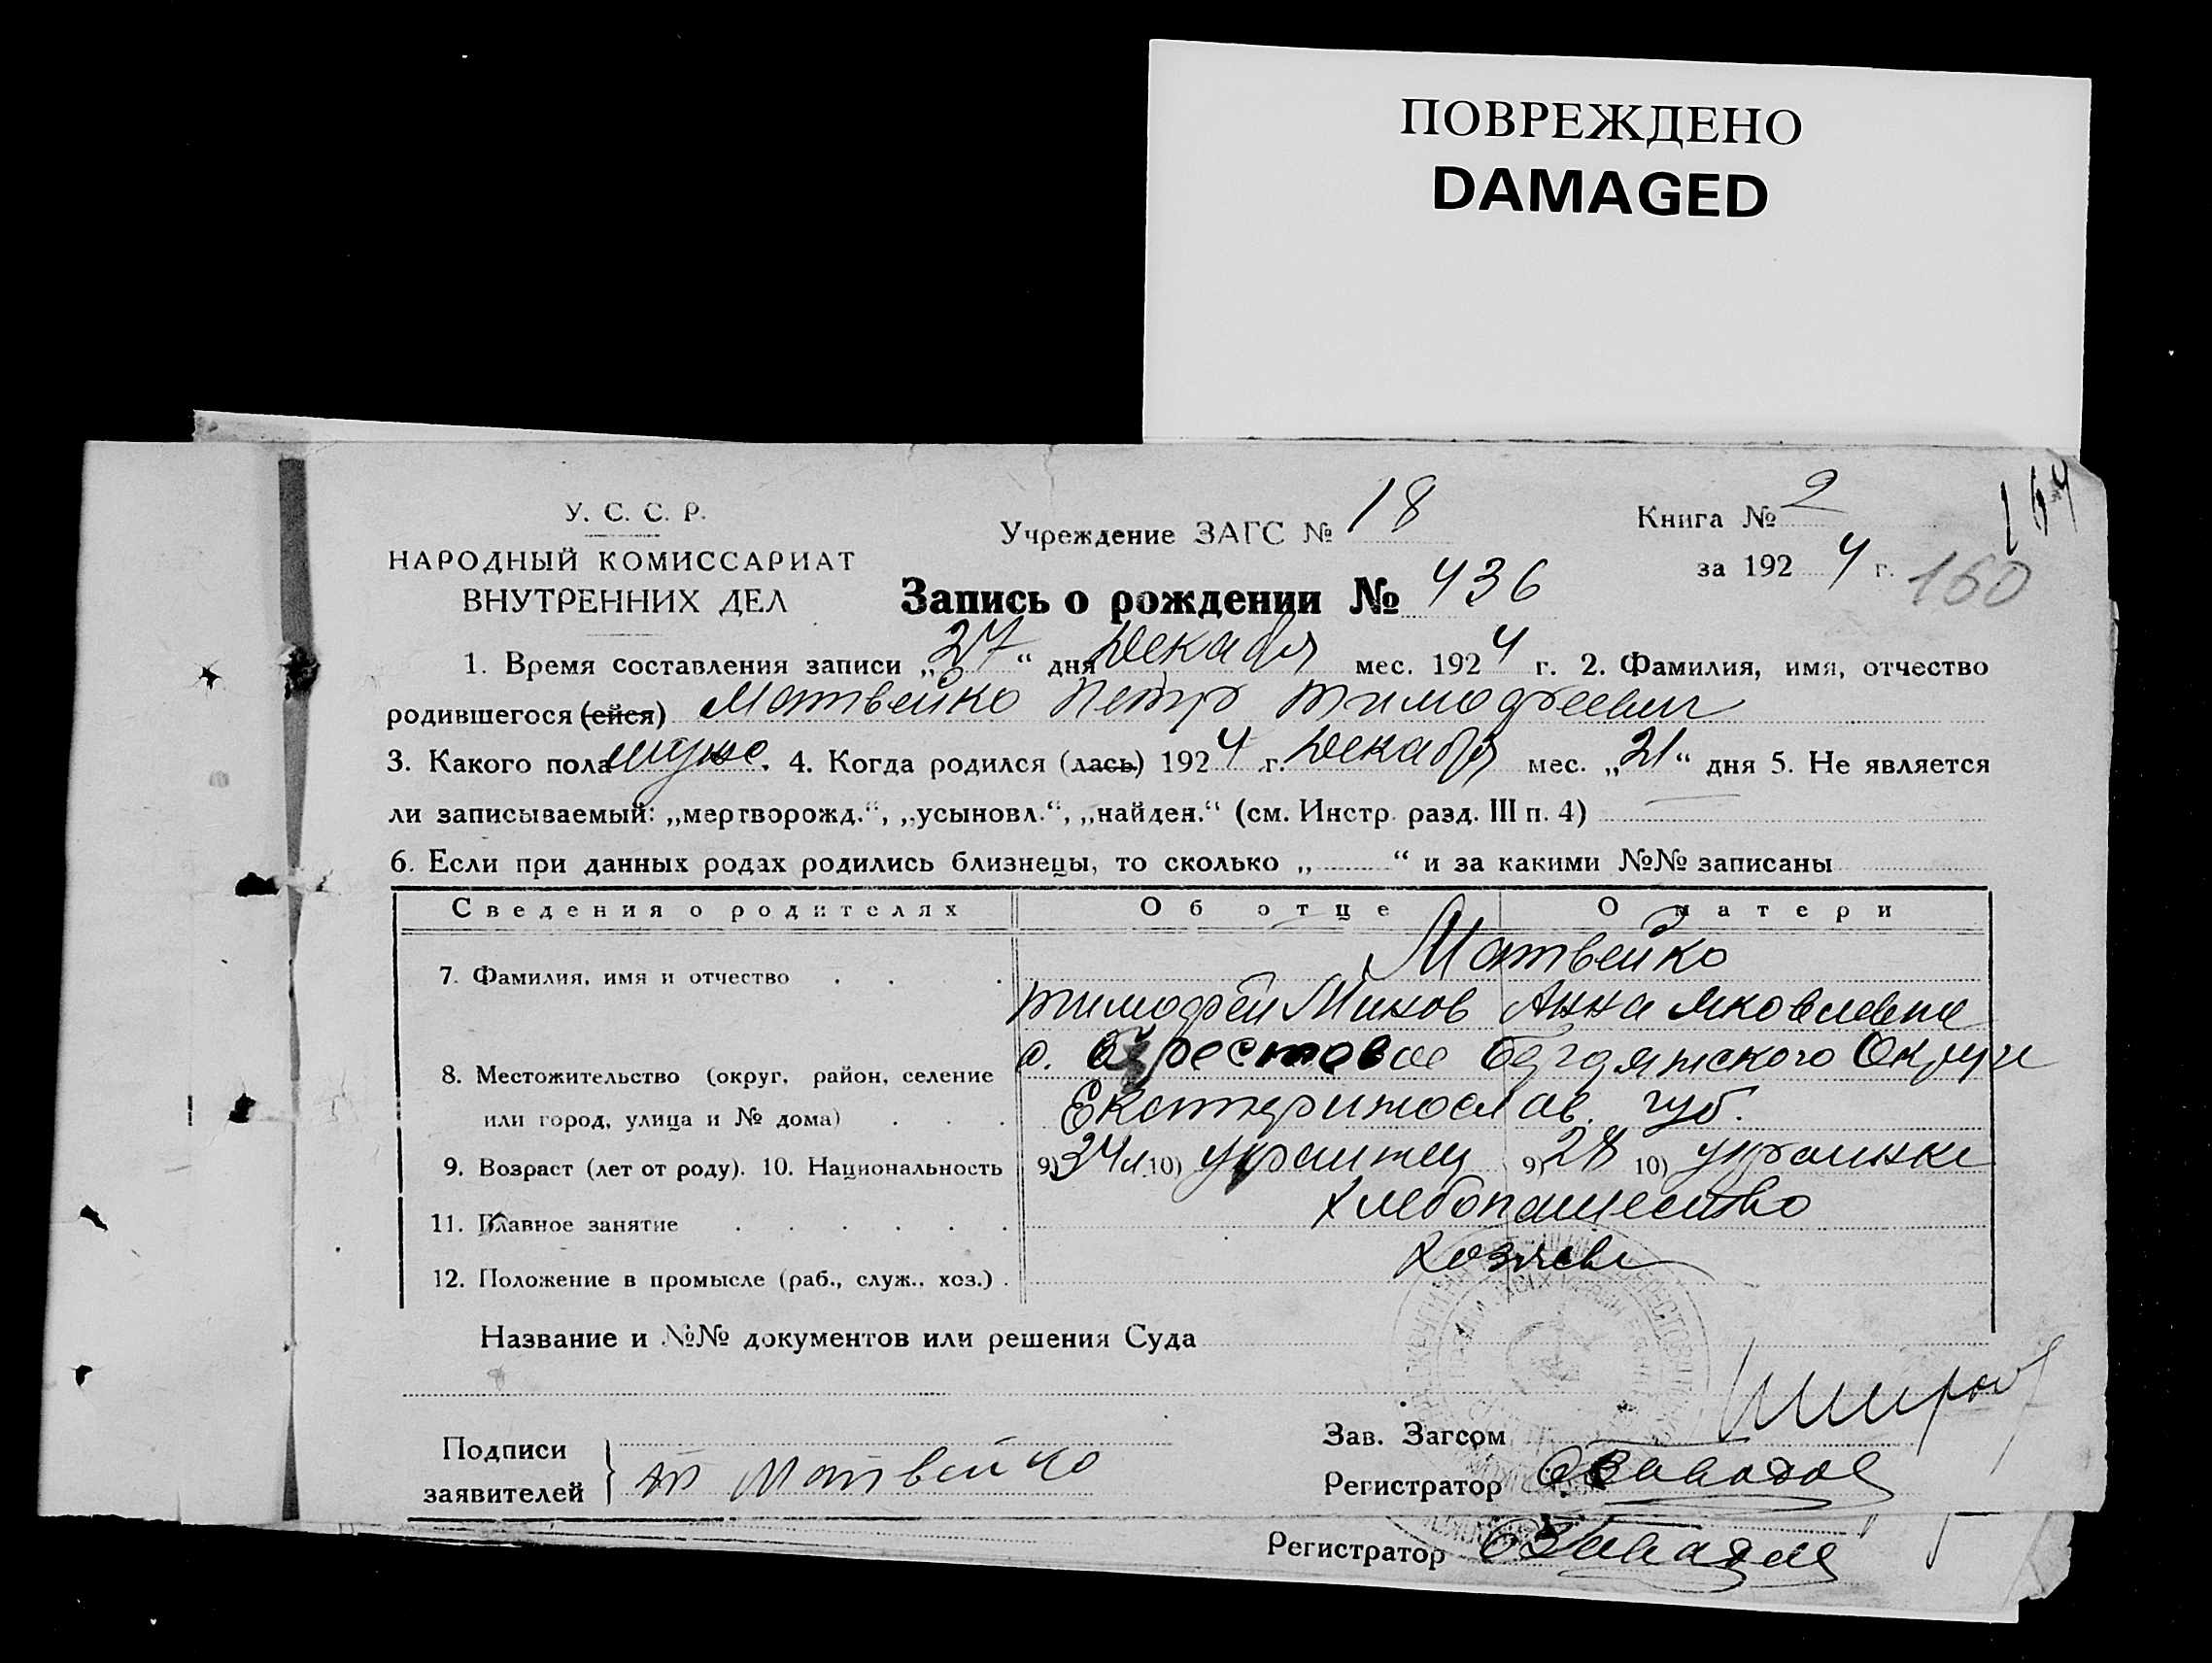 ПОВРЕЖДЕНО
DAMAGED
154
У. С. С. Р.
НАРОДНЫЙ КОМИССАРИАТ
ВНУТРЕННИХ ДЕЛ
Учреждение ЗАГС № 18
Книга № 2
за 1924 г.
160
Запись о рождении № 436
1. Время составления записи „27“ дня Декабря мес. 1924 г. 2. Фамилия, имя, отчество
родившегося (ейся) Матвейко Петр Тимофеевич
3. Какого пола муж. 4. Когда родился (лась) 1924 г. Декабря мес. „21“ дня 5. Не является
ли записываемый: „мертворожд.“, „усыновл.“, „найден.“ (см. Инстр. разд. III п. 4)
6. Если при данных родах родились близнецы, то сколько „ “ и за какими №№ записаны
Сведения о родителях Об отце О матери
7. Фамилия, имя и отчество Матвейко
Тимофей Минов Анна Яковлевна
8. Местожительство (округ, район, селение с. Берестовое Бердянского Округа
или город, улица и № дома) Екатеринослав. губ.
9. Возраст (лет от роду). 10. Национальность 9) 34 л. 10) украинец 9) 28 10) украинка
11. Главное занятие Хлебопашество
12. Положение в промысле (раб., служ., хоз.) Хозяева
Название и №№ документов или решения Суда
Подписи
заявителей Матвейко
Зав. Загсом
Регистратор
Регистратор